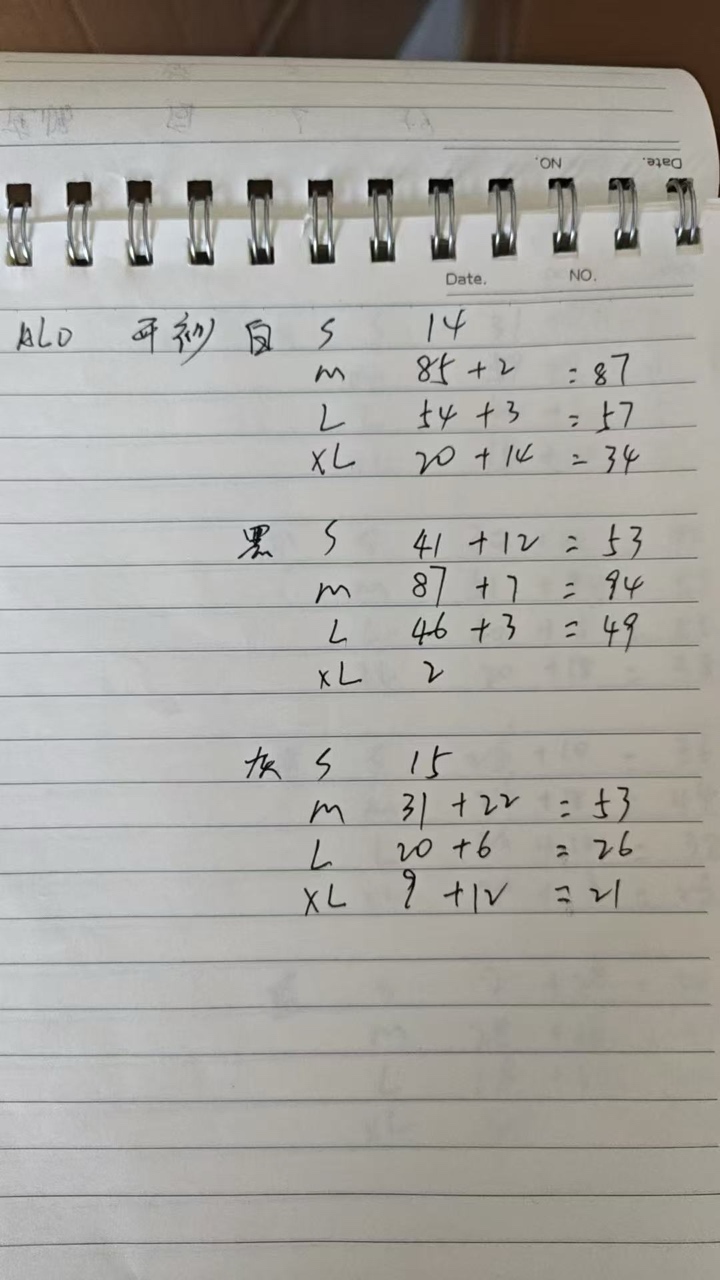 NO.
Date.
Date. NO.
ALO 开衫 白 S 14
m 85+2 =87
L 54+3 =57
XL 20+14 =34
黑 S 41+12=53
m 87+7=94
L 46+3=49
XL 2
灰 S 15
m 31+22=53
L 20+6=26
XL 9+12=21